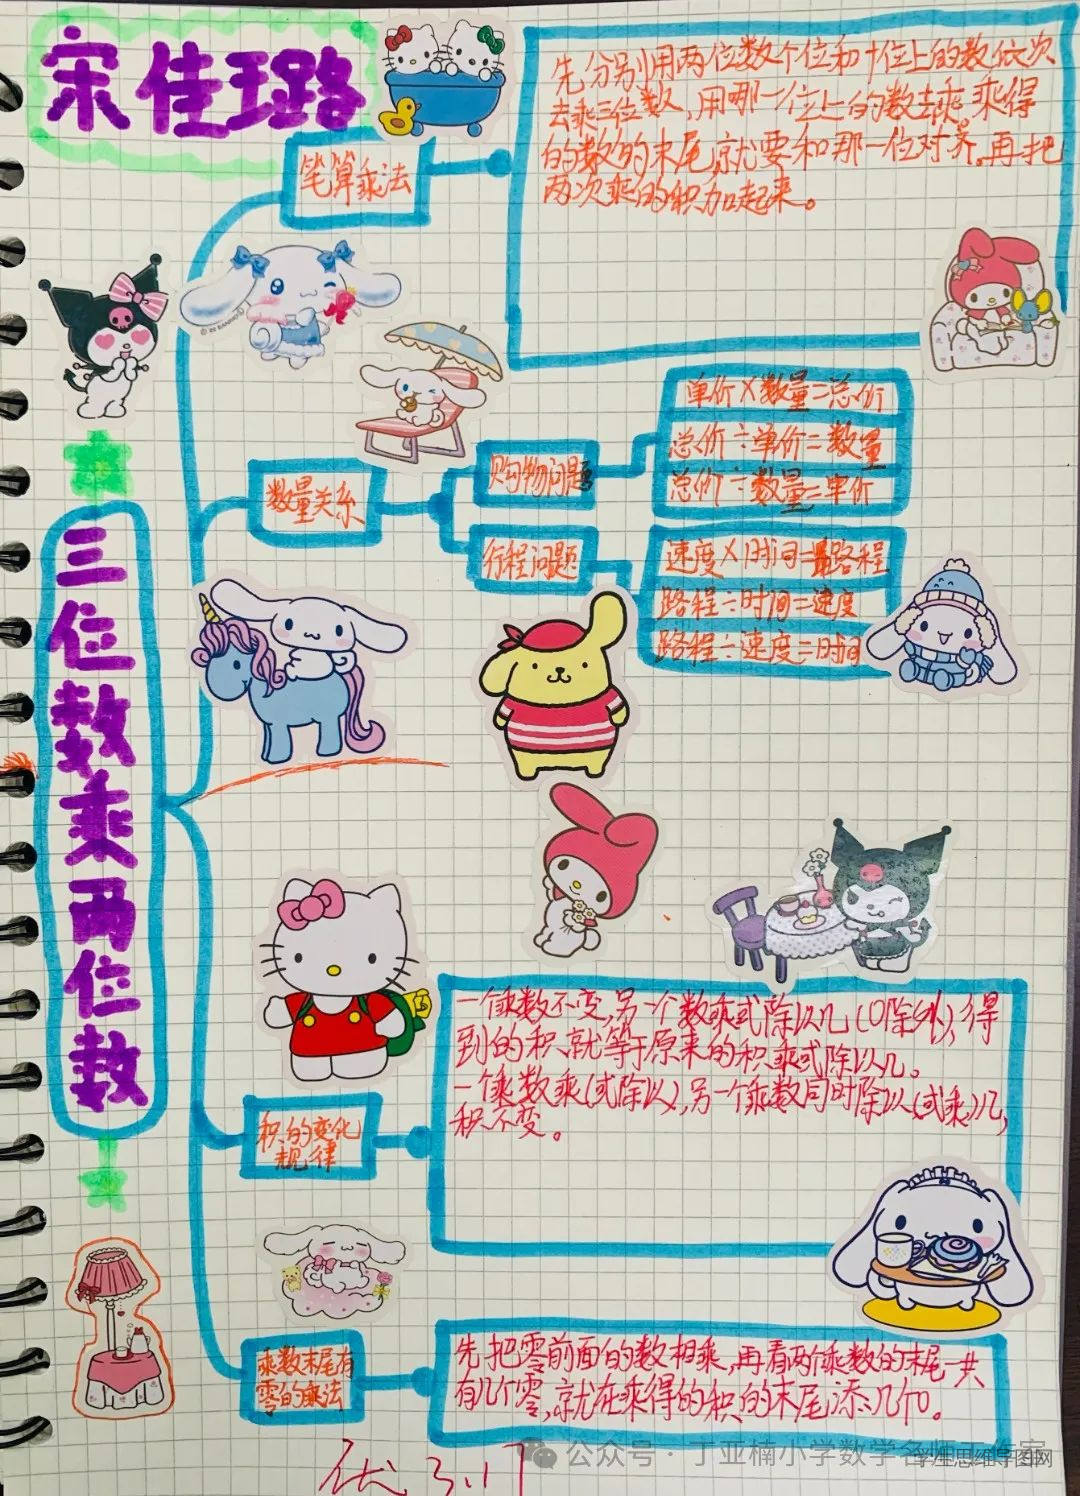 宋佳璐
笔算乘法
先分别用两位数个位和十位上的数依次
去乘三位数，用哪一位上的数去乘。乘得
的数的末尾就要和那一位对齐。再把
两次乘的积加起来。
三位数乘两位数
数量关系
购物问题
单价×数量=总价
总价÷单价=数量
总价÷数量=单价
行程问题
速度×时间=路程
路程÷时间=速度
路程÷速度=时间
积的变化
规律
一个乘数不变，另一个数乘或除以几(0除外)，得
到的积就等于原来的积乘或除以几。
一个乘数乘(或除以)，另一个乘数同时除以(或乘)几，
积不变。
乘数末尾有
零的乘法
先把零前面的数相乘，再看两个乘数的末尾一共
有几个零，就在乘得的积的末尾添几个0。
优 3.17
公众号·丁亚楠小学数学名师工作室
学生思维导图网